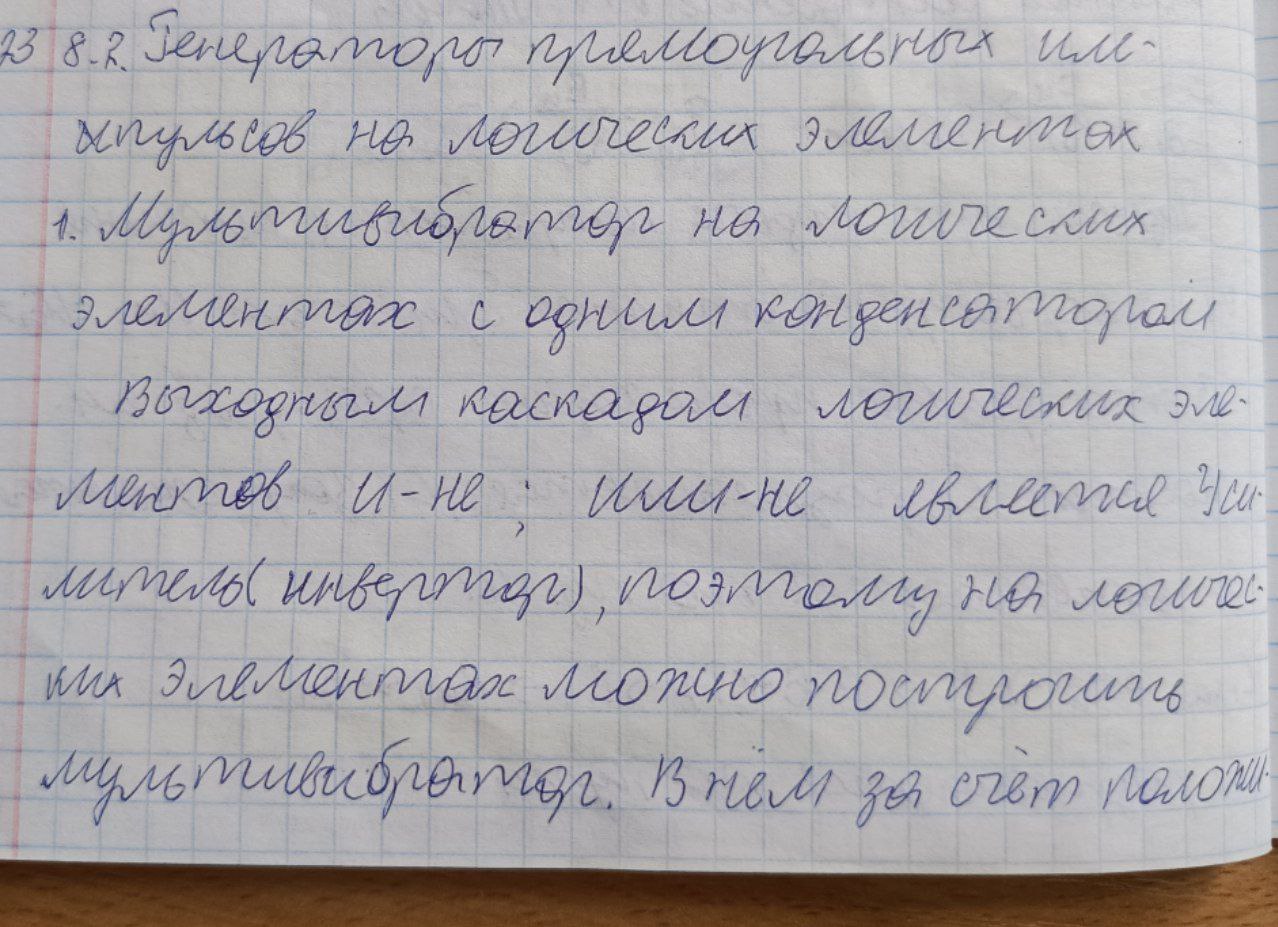 23 8.2. Генераторы прямоугольных им-
пульсов на логических элементах
1. Мультивибратор на логических
элементах с одним конденсатором
Выходным каскадом логических эле-
ментов И-не; ИЛИ-не является Уси-
литель(инвертор), поэтому на логичес-
ких элементах можно построить
мультивибратор. В нём за счёт положи-